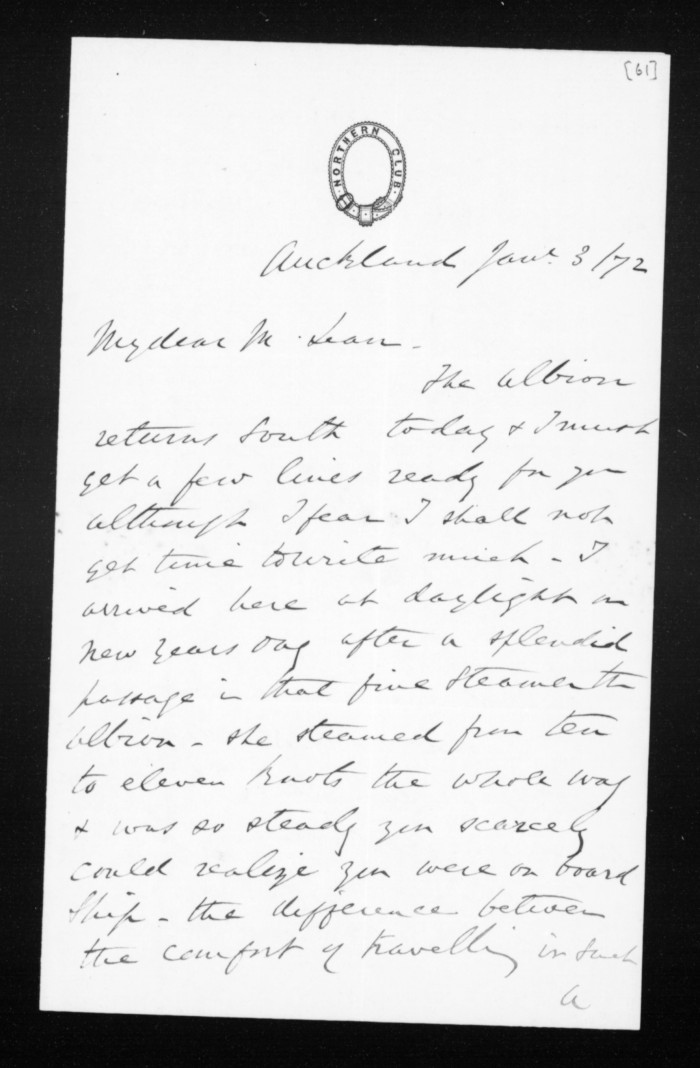 [61]
NORTHERN CLUB
Auckland Jany. 3/72
My dear McLean -
The Albion
returns South today & I must
get a few lines ready for you
although I fear I shall not
get time to write much - I
arrived here at daylight on
New Years Day after a splendid
passage in that fine Steamer the
Albion - she steamed from ten
to eleven knots the whole way
& was so steady you scarcely
could realize you were on board
Ship - the difference between
the comfort of travelling in such
a